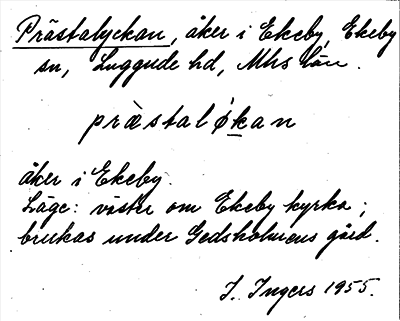 Prästalyckan, åker i Ekeby, Ekeby
sn, Luggude hd, Mhs län.
præ̀stalýkan
åker i Ekeby.
Läge: väster om Ekeby kyrka;
brukas under Gedsholmens gård.
I. Ingers 1955.